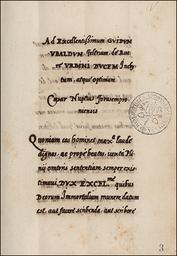 Ad Excellentissimum GVIDVM
VBALDVM Feltrium de Ruu
re VRBINI DVCEM Inclytum, atque optimum
Caspar Nuptus Forosemproniensis
Quoniam eos homines max laude
dignos, ac prope beatos, uenti
omnis sententiam semper existimaui, DVX EXCEL.me quibus
Deorum Immortalium munere datum
est, aut facere scribenda, aut scribere
3